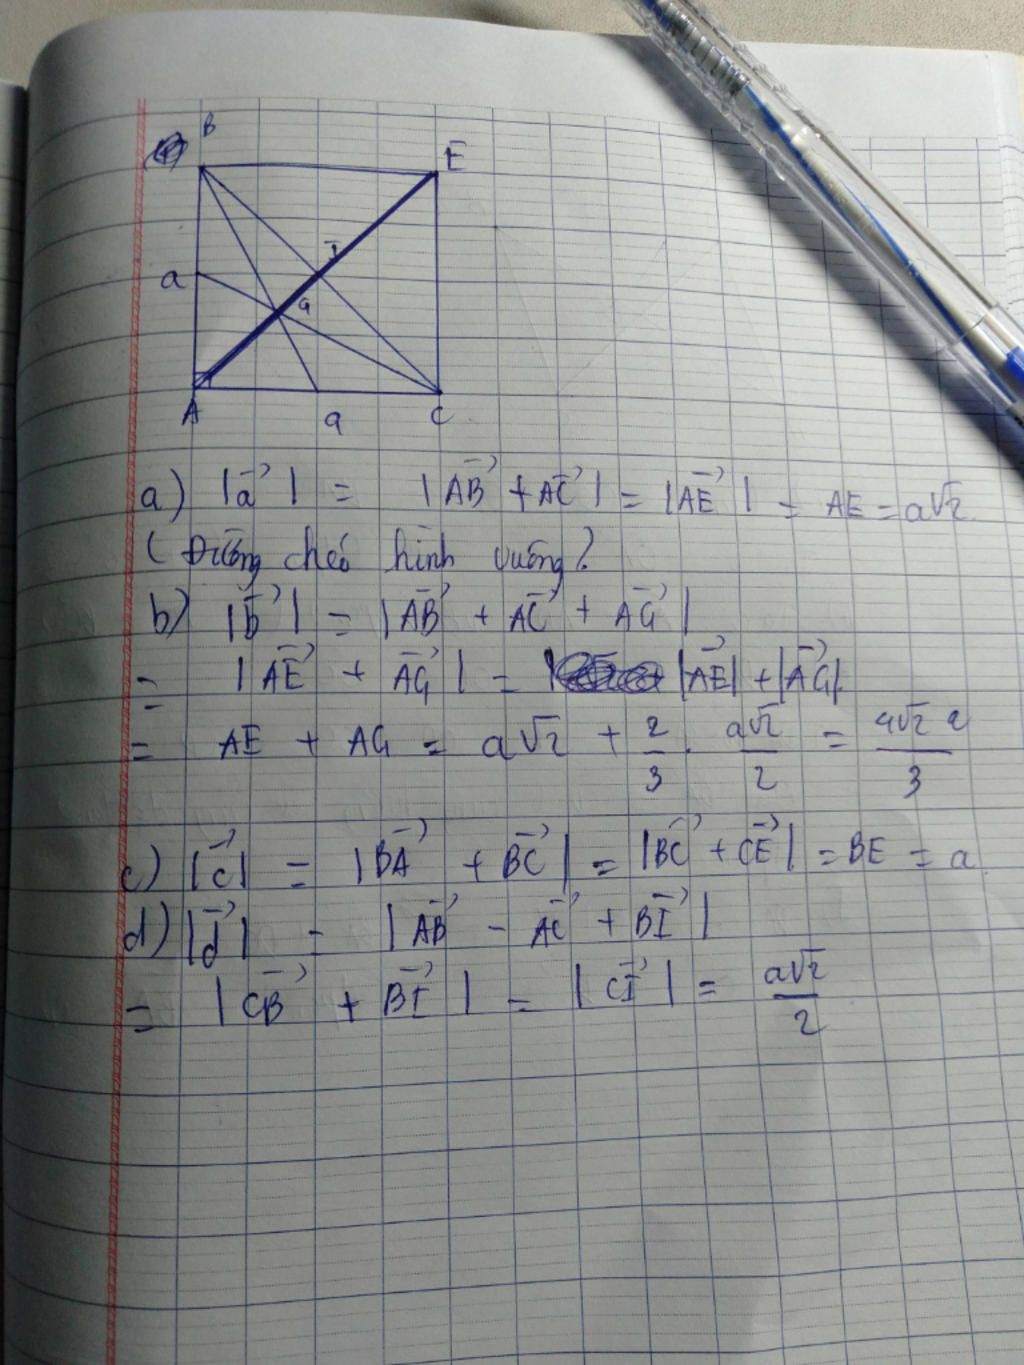 B
E
I
a
G
A
a
C
a) |a⃗| = |AB⃗ + AC⃗| = |AE⃗| = AE = a√2.
(Đường chéo hình vuông)
b) |b⃗| = |AB⃗ + AC⃗ + AG⃗|
= |AE⃗ + AG⃗| = |AE⃗| + |AG⃗|.
= AE + AG = a√2 + 2/3 . a√2/2 = 4√2 a/3
c) |c⃗| = |BA⃗ + BC⃗| = |BC⃗ + CE⃗| = BE = a
d) |d⃗| = |AB⃗ - AC⃗ + BI⃗|
= |CB⃗ + BI⃗| = |CI⃗| = a√2/2